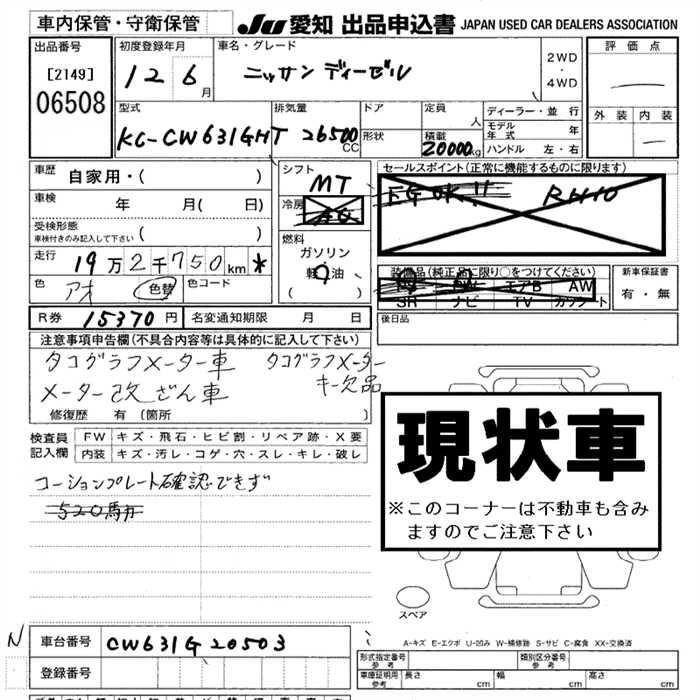 車内保管・守衛保管
JU 愛知 出品申込書 JAPAN USED CAR DEALERS ASSOCIATION
出品番号
[2149]
06508
初度登録年月
12 6月
車名・グレード
ニッサン ディーゼル
2WD
・
4WD
評価点
外装 内装
型式
KC-CW631GHT
排気量
26500
CC
ドア
形状
定員
人
積載
20000kg
ディーラー・並行
モデル年式 年
ハンドル 左・右
車歴
自家用・( )
車検 年 月( 日)
受検形態
車検付きのみ記入して下さい ( )
走行 19万2千750km *
色 アオ 色替 色コード
シフト
MT
冷房
AC
燃料
ガソリン
軽油
( )
セールスポイント(正常に機能するものに限ります)
EG OK!! RH10
装備品(純正品に限り○をつけてください)
PS PW エアB AW
SR ナビ TV カワシート
新車保証書
有・無
R券 15370円 名変通知期限 月 日
後日品
注意事項申告欄(不具合内容等は具体的に記入して下さい)
タコグラフメーター車 タコグラフメーター
キー欠品
メーター改ざん車
修復歴 有(箇所 )
検査員記入欄
FW キズ・飛石・ヒビ割・リペア跡・X要
内装 キズ・汚レ・コゲ・穴・スレ・キレ・破レ
コーションプレート確認できず
520馬力
現状車
※このコーナーは不動車も含み
ますのでご注意下さい
スペア
A-キズ E-エクボ U-凹み W-補修跡 S-サビ C-腐食 XX-交換済
N
車台番号 CW631G20503
登録番号
形式指定番号
参考
類別区分番号
参考
車庫証明用
参考
長さ cm 幅 cm 高さ cm